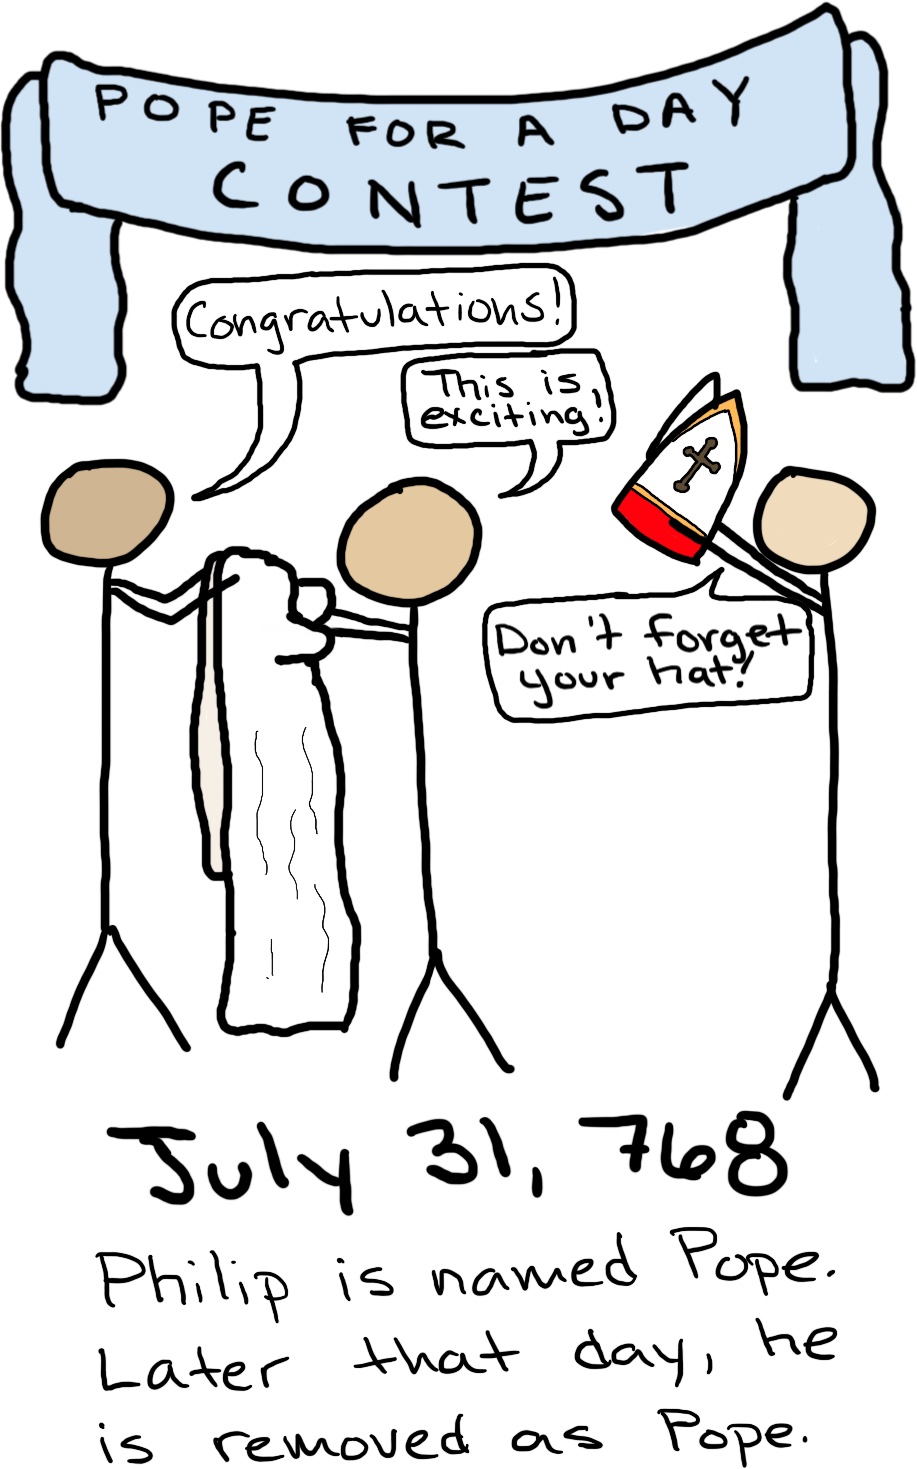 POPE FOR A DAY
CONTEST
Congratulations!
This is
exciting!
Don't forget
your hat!
July 31, 768
Philip is named Pope.
Later that day, he
is removed as Pope.